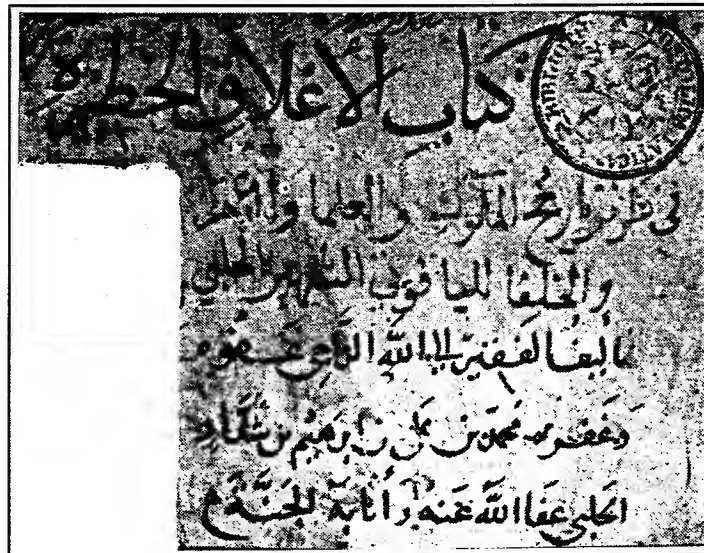 كتاب الأغلاق الخطيرة
في غرر تاريخ الملوك والعلما والأمرا
والخلفا لليا قوتي الشهير الحلبي
تأليف الفقير إلى الله الراجي عفوه
وغفرانه محمد بن علي بن إبرهيم بن شداد
الحلبي عفا الله عنه وأثابه الجنة